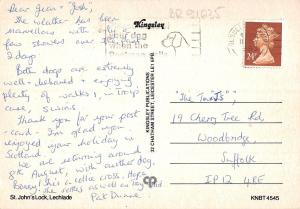 Dear Jean + Josh,
The weather has been
marvellous with only a
few showers over
2 days.
Both dogs are extremely
well-behaved + enjoying
plenty of walks, in
case, swims.
Thank you for your post
-card. I'm glad you
enjoyed your holiday in
Scotland.
We are returning around
8th August, with another dog,
Benny! this a collie cross. Hope
the
Pat
St. John's Lock, Lechlade
Kingsley
KINGSLEY PUBLICATIONS
22 CHATHAM STREET, LEICESTER LE1 6PB.
BR 91625
your dog
when the
24
"The Twists",
19 Cherry Tree Rd,
Woodbridge,
Suffolk
IP12 4EE
KNBT 4545